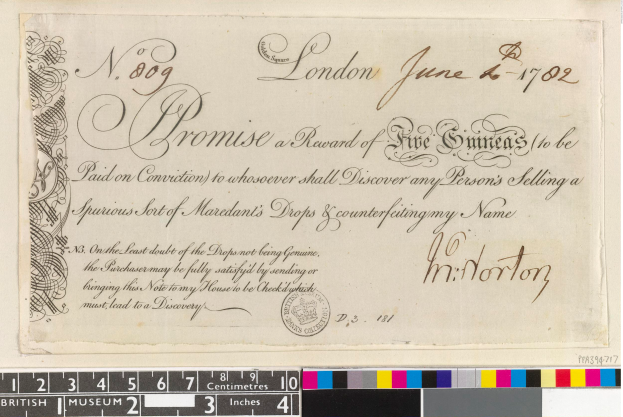 No. 809 Golden Square London June 4th 1782
I Promise a Reward of Five Guineas (to be
Paid on Conviction) to whosoever shall Discover any Person's Selling a
Spurious Sort of Maredant's Drops & counterfeiting my Name
Jno: Norton
NB. On the Least doubt of the Drops not being Genuine,
the Purchaser may be fully satisfy'd by sending or
bringing this Note to my House to be Check'd which
must, lead to a Discovery.
BRITISH MUSEUM
BANKS COLLECTION
D,3. 181
MA394717
1 2 3 4 5 6 7 8 9 10
Centimetres
BRITISH MUSEUM
1 2 3 Inches 4